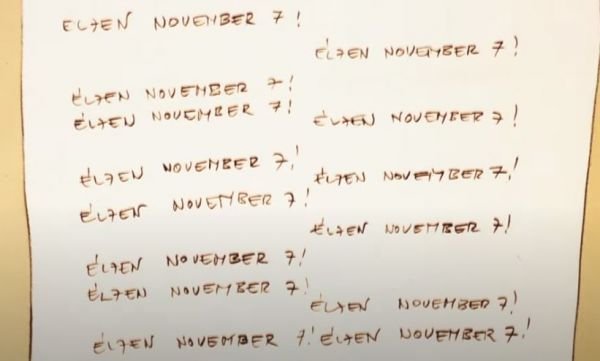 ELJEN NOVEMBER 7!
ÉLJEN NOVEMBER 7!
ÉLJEN NOVEMBER 7!
ÉLJEN NOVEMBER 7!
ÉLJEN NOVEMBER 7!
ÉLJEN NOVEMBER 7!
ÉLJEN NOVEMBER 7!
ÉLJEN NOVEMBER 7!
ÉLJEN NOVEMBER 7!
ÉLJEN NOVEMBER 7!
ÉLJEN NOVEMBER 7!
ÉLJEN NOVEMBER 7!
ÉLJEN NOVEMBER 7! ÉLJEN NOVEMBER 7!